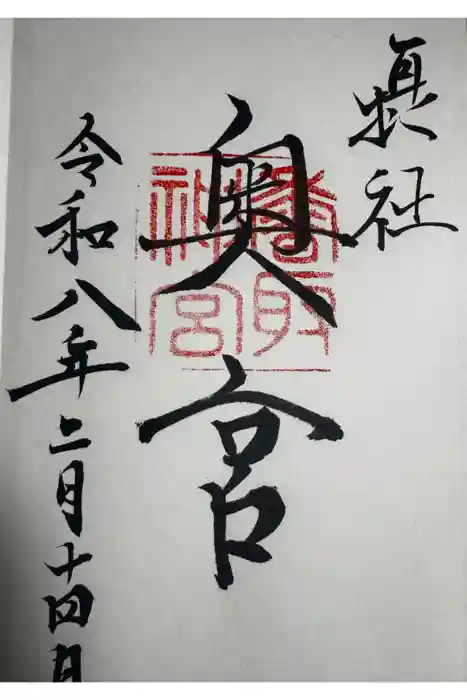 摂社
奥宮
香取
神宮
令和八年二月十四日